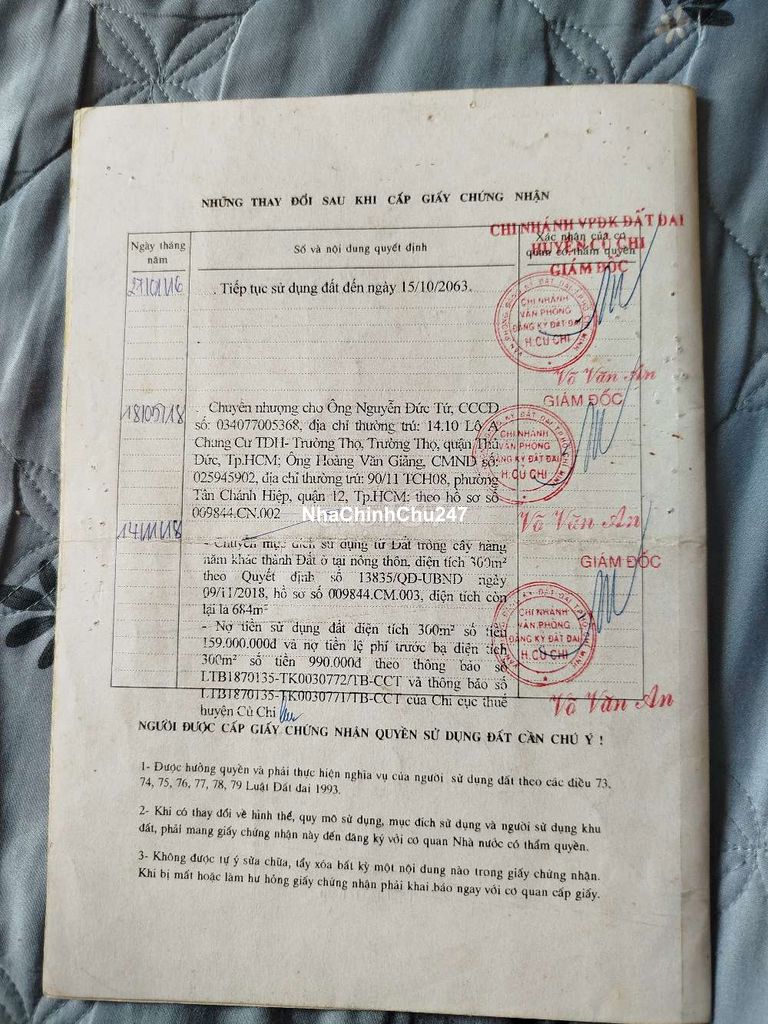 NHỮNG THAY ĐỔI SAU KHI CẤP GIẤY CHỨNG NHẬN
Ngày tháng năm
Số và nội dung quyết định
Xác nhận của cơ quan có thẩm quyền
CHI NHÁNH VPĐK ĐẤT ĐAI
HUYỆN CỦ CHI
GIÁM ĐỐC
27/01/16
. Tiếp tục sử dụng đất đến ngày 15/10/2063.
CHI NHÁNH
VĂN PHÒNG
ĐĂNG KÝ ĐẤT ĐAI
H. CỦ CHI
Võ Văn An
18/05/18
. Chuyển nhượng cho Ông Nguyễn Đức Tứ, CCCD
số: 034077005368, địa chỉ thường trú: 14.10 Lô A
Chung Cư TDH- Trường Thọ, Trường Thọ, quận Thủ
Đức, Tp.HCM; Ông Hoàng Văn Giảng, CMND số:
025945902, địa chỉ thường trú: 90/11 TCH08, phường
Tân Chánh Hiệp, quận 12, Tp.HCM; theo hồ sơ số
009844.CN.002
GIÁM ĐỐC
CHI NHÁNH
VĂN PHÒNG
ĐĂNG KÝ ĐẤT ĐAI
H. CỦ CHI
Võ Văn An
NhaChinhChu247
14/11/18
- Chuyển mục đích sử dụng từ Đất trồng cây hàng
năm khác thành Đất ở tại nông thôn, diện tích 300m²
theo Quyết định số 13835/QĐ-UBND ngày
09/11/2018, hồ sơ số 009844.CM.003, diện tích còn
lại là 684m²
- Nợ tiền sử dụng đất diện tích 300m² số tiền
159.000.000đ và nợ tiền lệ phí trước bạ diện tích
300m² số tiền 990.000đ theo thông báo số
LTB1870135-TK0030772/TB-CCT và thông báo số
LTB1870135-TK0030771/TB-CCT của Chi cục thuế
huyện Củ Chi
GIÁM ĐỐC
CHI NHÁNH
VĂN PHÒNG
ĐĂNG KÝ ĐẤT ĐAI
H. CỦ CHI
Võ Văn An
NGƯỜI ĐƯỢC CẤP GIẤY CHỨNG NHẬN QUYỀN SỬ DỤNG ĐẤT CẦN CHÚ Ý !
1- Được hưởng quyền và phải thực hiện nghĩa vụ của người sử dụng đất theo các điều 73,
74, 75, 76, 77, 78, 79 Luật Đất đai 1993.
2- Khi có thay đổi về hình thể, quy mô sử dụng, mục đích sử dụng và người sử dụng khu
đất, phải mang giấy chứng nhận này đến đăng ký với cơ quan Nhà nước có thẩm quyền.
3- Không được tự ý sửa chữa, tẩy xóa bất kỳ một nội dung nào trong giấy chứng nhận.
Khi bị mất hoặc làm hư hỏng giấy chứng nhận phải khai báo ngay với cơ quan cấp giấy.